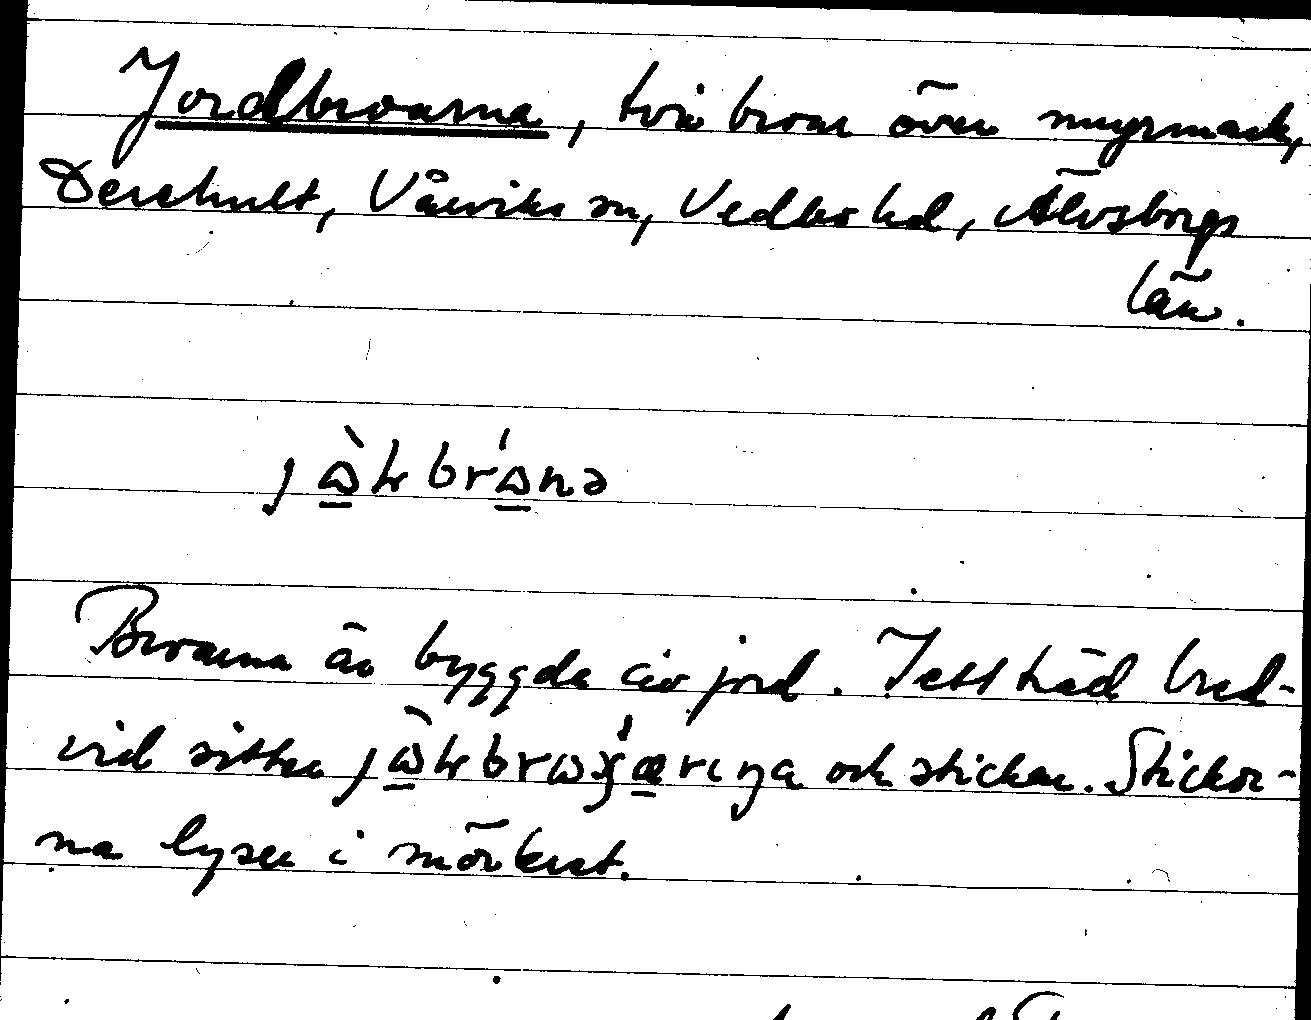 Jordbroarna, två broar över myrmark,
Derehult, Vårviks sn, Vedbo hd, Älvsborgs
län.
Broarna är byggda av jord. I ett träd bred-
vid sitter och stickar. Stickor-
na lyser i mörkret.